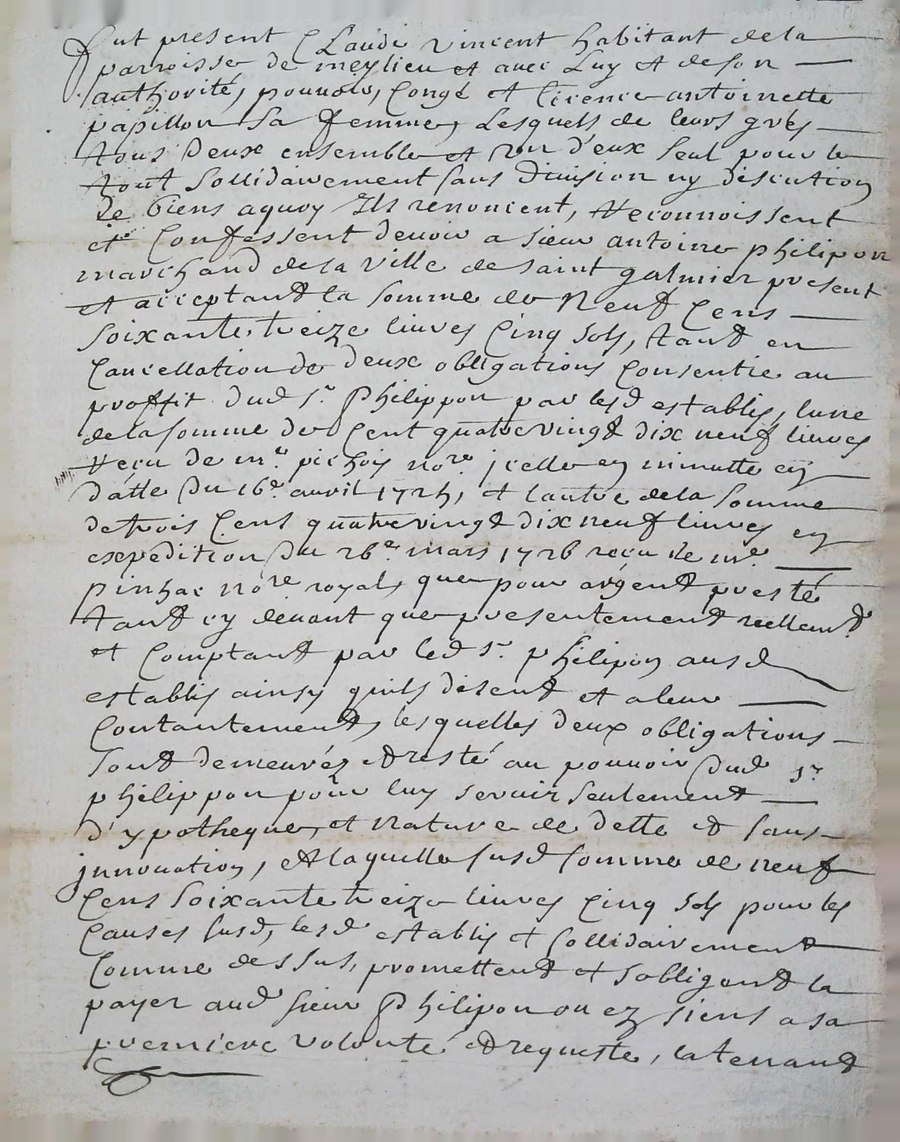 fut present Claude vincent habitant de la
parroisse de meylieu et avec Luy et de son
authorité, pouvoir, Congé et licence antoinette
papillon sa femme, Lesquels de leurs grés
tous deux ensemble et l'un d'eux seul pour le
tout sollidairement sans division ny discution
de biens aquoy Ils renoncent, Reconnoissent
et Confessent devoir a sieur antoine philipon
marchand de la ville de saint galmier present
et acceptant la somme de Neuf Cens
soixante treize livres Cinq sols, tant en
Cancellation de deux obligations Consentie au
proffit dud sr philippon par lesd establis, lune
de la somme de Cent quatre vingt dix neuf livres
Reçu de me pichois nore jcelle en minutte en
datte du 16e avril 1724, et lautre de la somme
de trois Cens quatre vingt dix neuf livres en
expedition du 26e mars 1726 reçu de me
pinhac nore royal, que pour argent presté
tant cy devant que presentement reellemt
et Comptant par led sr philipon ausd
establis ainsy quils disent et a leur
Contantement, lesquelles deux obligations
sont demeurées et resté au pouvoir dud sr
philippon pour luy servir seulement
d'ypotheque, et nature de dette et sans
jnnovation, et laquelle susd somme de neuf
Cens soixante treize livres Cinq sols pour les
Causes susd, lesd establis et sollidairement
Comme dessus, promettent et sobligent la
payer aud sieur philipon ou ez siens a sa
premiere volonté et requeste, latenant